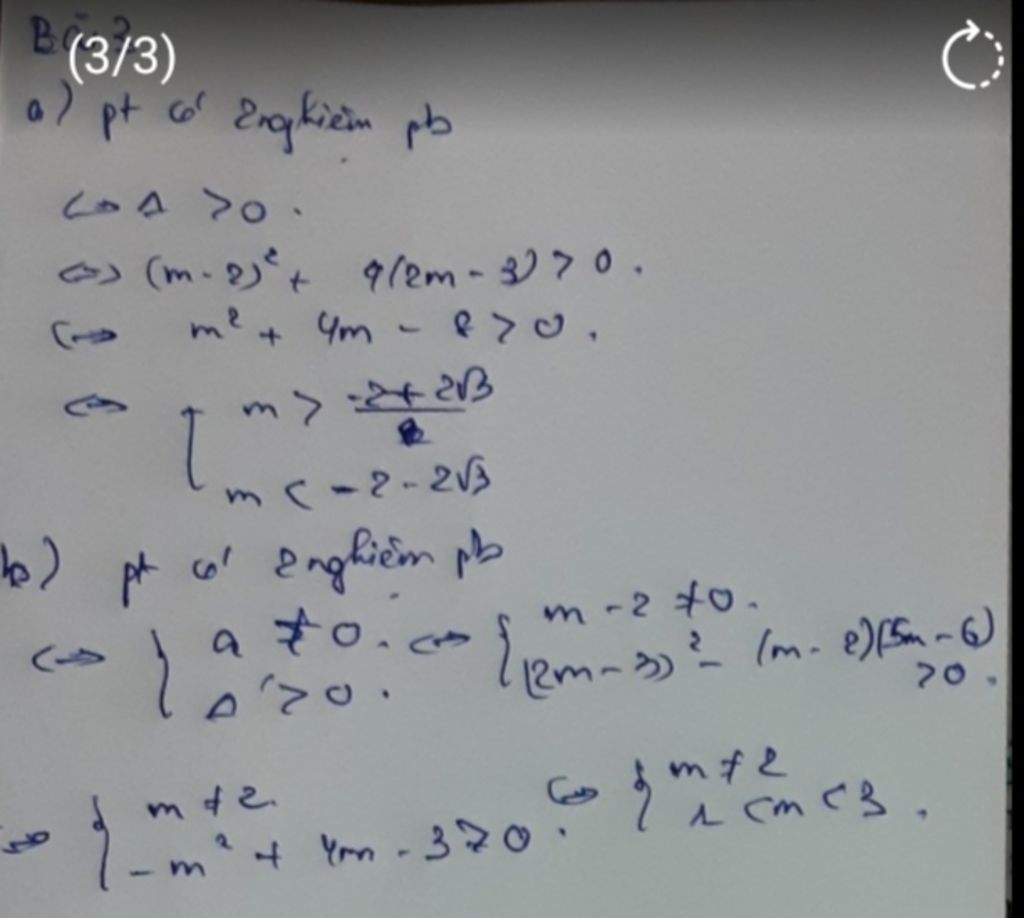 Bài 3
(3/3)
a) pt có 2 nghiệm pb
⇔ Δ > 0.
⇔ (m - 2)² + 4(2m - 3) > 0.
⇔ m² + 4m - 8 > 0.
⇔ [ m > -2 + 2√3
m < -2 - 2√3
b) pt có 2 nghiệm pb
⇔ { a ≠ 0. ⇔ { m - 2 ≠ 0.
Δ' > 0. (2m - 3)² - (m - 2)(5m - 6) > 0.
⇔ { m ≠ 2. ⇔ { m ≠ 2
-m² + 4m - 3 > 0. 1 < m < 3.